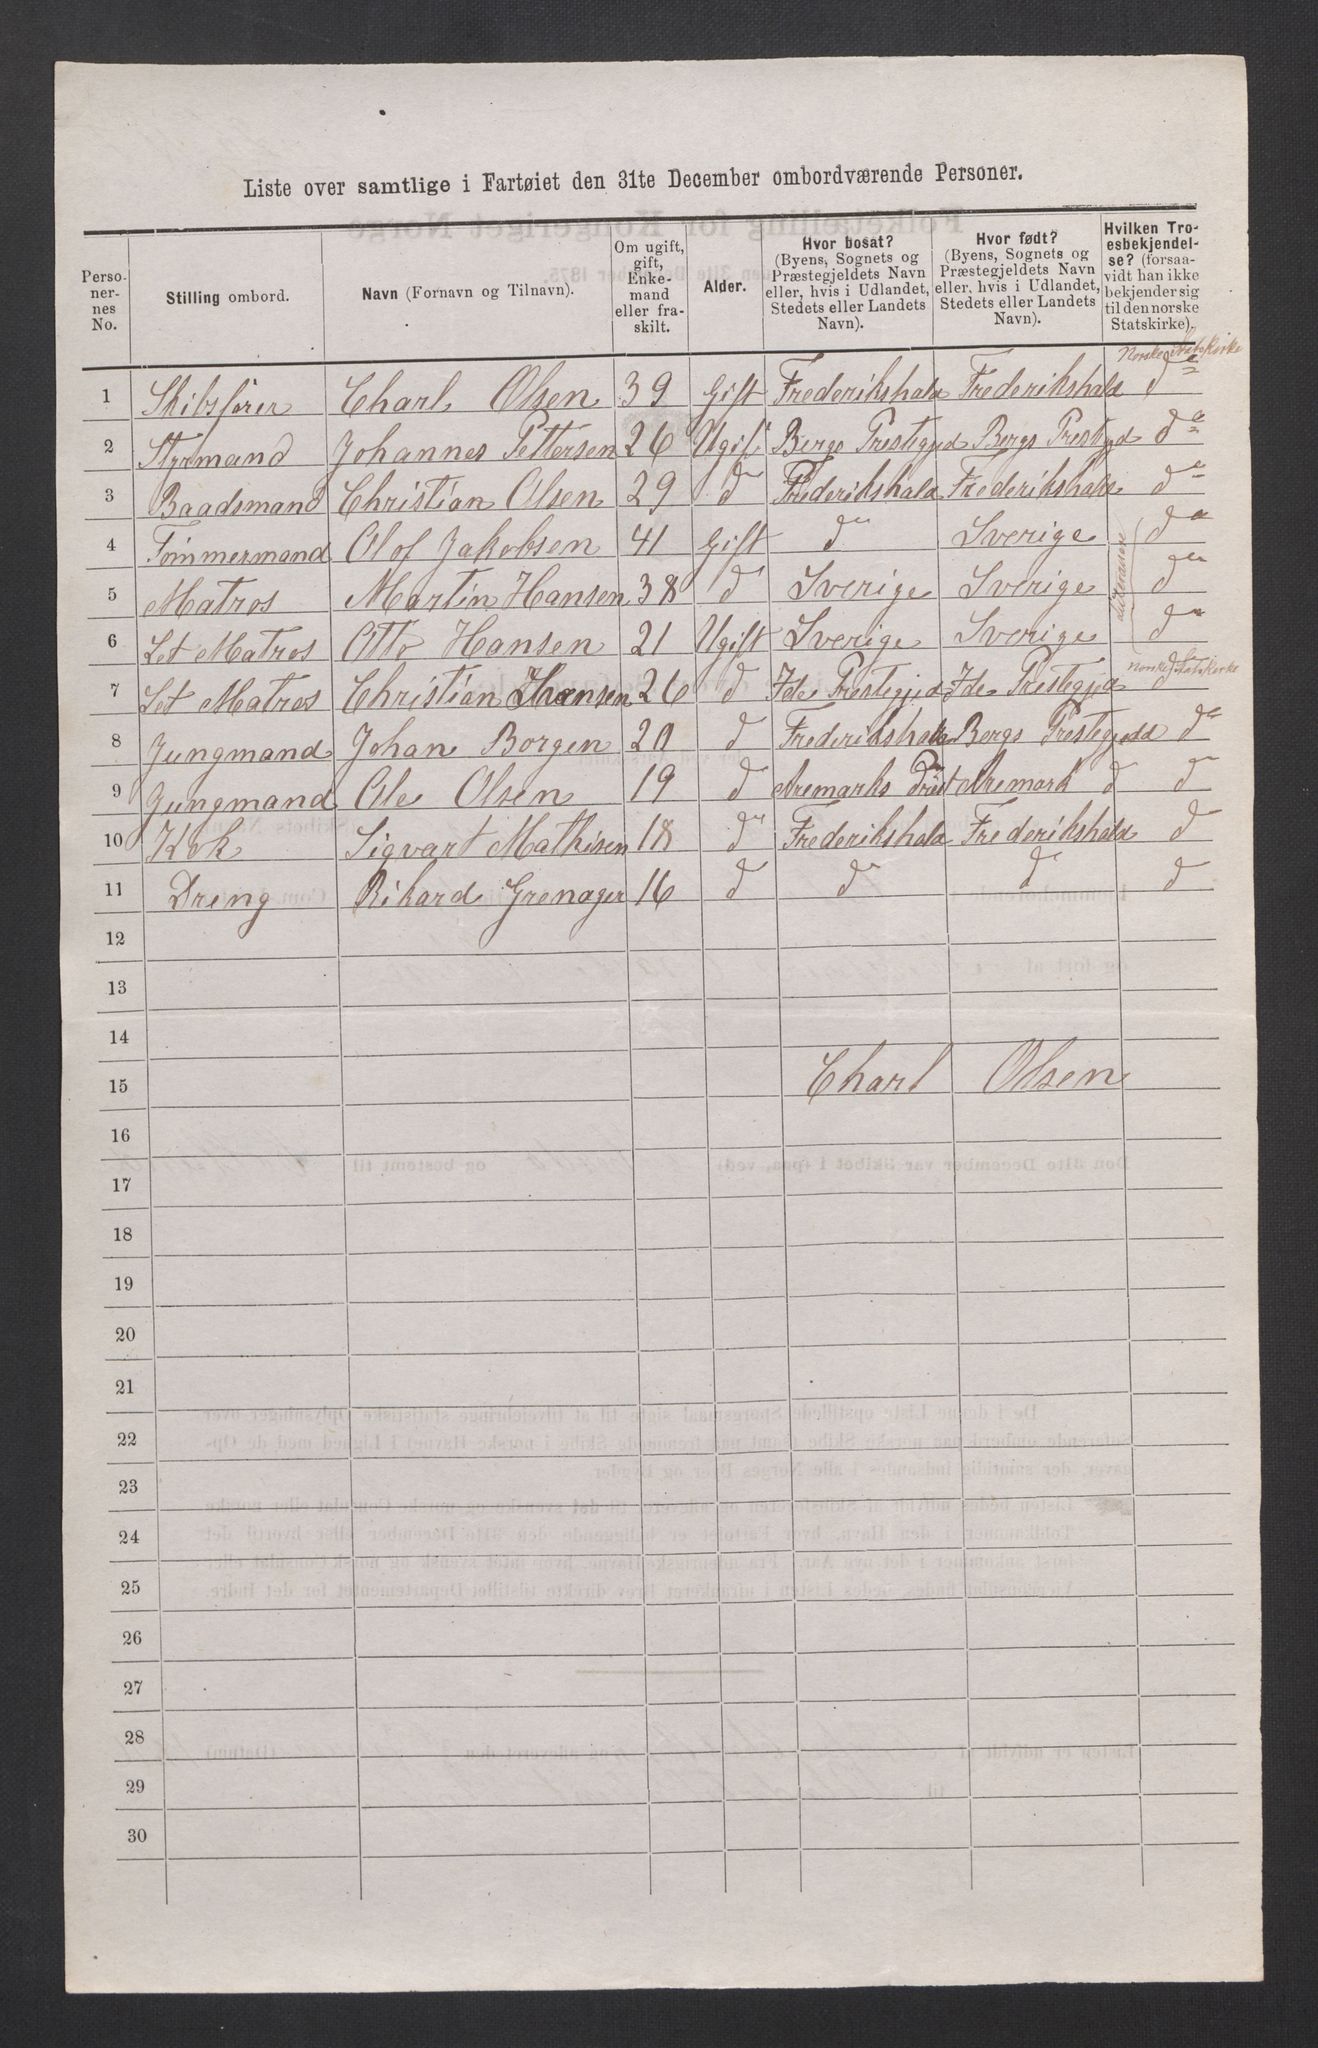 Liste over samtlige i Fartøiet den 31te December ombordværende Personer.
Perso-nernes No. | Stilling ombord. | Navn (Fornavn og Tilnavn). | Om ugift, gift, Enke-mand eller fra-skilt. | Alder. | Hvor bosat? (Byens, Sognets og Præstegjeldets Navn eller, hvis i Udlandet, Stedets eller Landets Navn). | Hvor født? (Byens, Sognets og Præstegjeldets Navn eller, hvis i Udlandet, Stedets eller Landets Navn). | Hvilken Tro-esbekjendel-se? (forsaa-vidt han ikke bekjender sig til den norske Statskirke).
Norske Statskirke
1 Skibsfører Charl Olsen 39 Gift Frederikshald Frederikshald do
2 Styrmand Johannes Pettersen 26 Ugift Bergs Prestegjed Bergs Prestegjd do
3 Baadsmand Christian Olsen 29 do Frederikshald Frederikshald do
4 Tømmermand Olof Jakobsen 41 Gift do Sverige do
5 Matros Martin Hansen 38 do Sverige Sverige do
6 Let Matros Otto Hansen 21 Ugift Sverige Sverige do
Norske Statskirke
7 Let Matros Christian Hansen 26 d Ide Prestegjed Ide Prestegjd d
8 Jungmand Johan Borgen 20 d Frederikshald Bergs Prestegjedd do
9 Jungmand Ole Olsen 19 d Aremarks Prest Aremark d d
10 Kok Sigvart Mathisen 18 do Frederikshald Frederikshald d
11 Dreng Rikard Grenager 16 d d d d
12
13
14
Charl Olsen
15
16
17
18
19
20
21
22
23
24
25
26
27
28
29
30